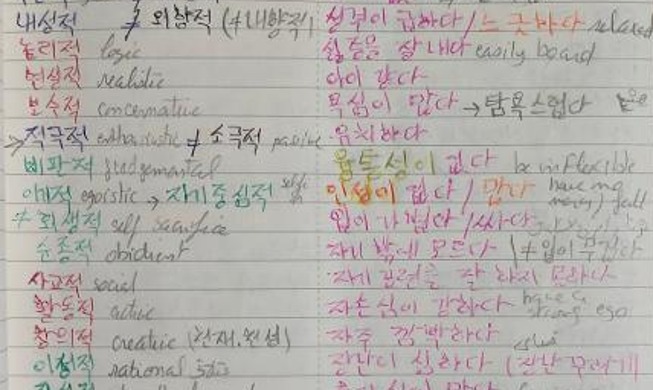 내성적 ≠ 외향적 (≠내향적) 성격이 급하다 / 느긋하다 relaxed
논리적 logic 싫증을 잘 내다 easily board
현실적 realistic 아이 같다
보수적 concernative 욕심이 많다 → 탐욕스럽다
→ 적극적 enthousiastic ≠ 소극적 passive 유치하다
비판적 judgemental 융통성이 없다 be inflexible
이기적 egoistic → 자기중심적 인성이 없다 / 많다 have no
≠ 희생적 self sacrifice 입이 가볍다 / 싸다
순종적 obidient 자기 밖에 모르다 (≠입이 무겁다
사교적 social 자기 관리를 잘 하지 못하다
활동적 active 자존심이 강하다 have a strong ego
창의적 creative (천재.원성) 자주 깜박하다
이성적 rational 장난이 심하다 (장난꾸러기